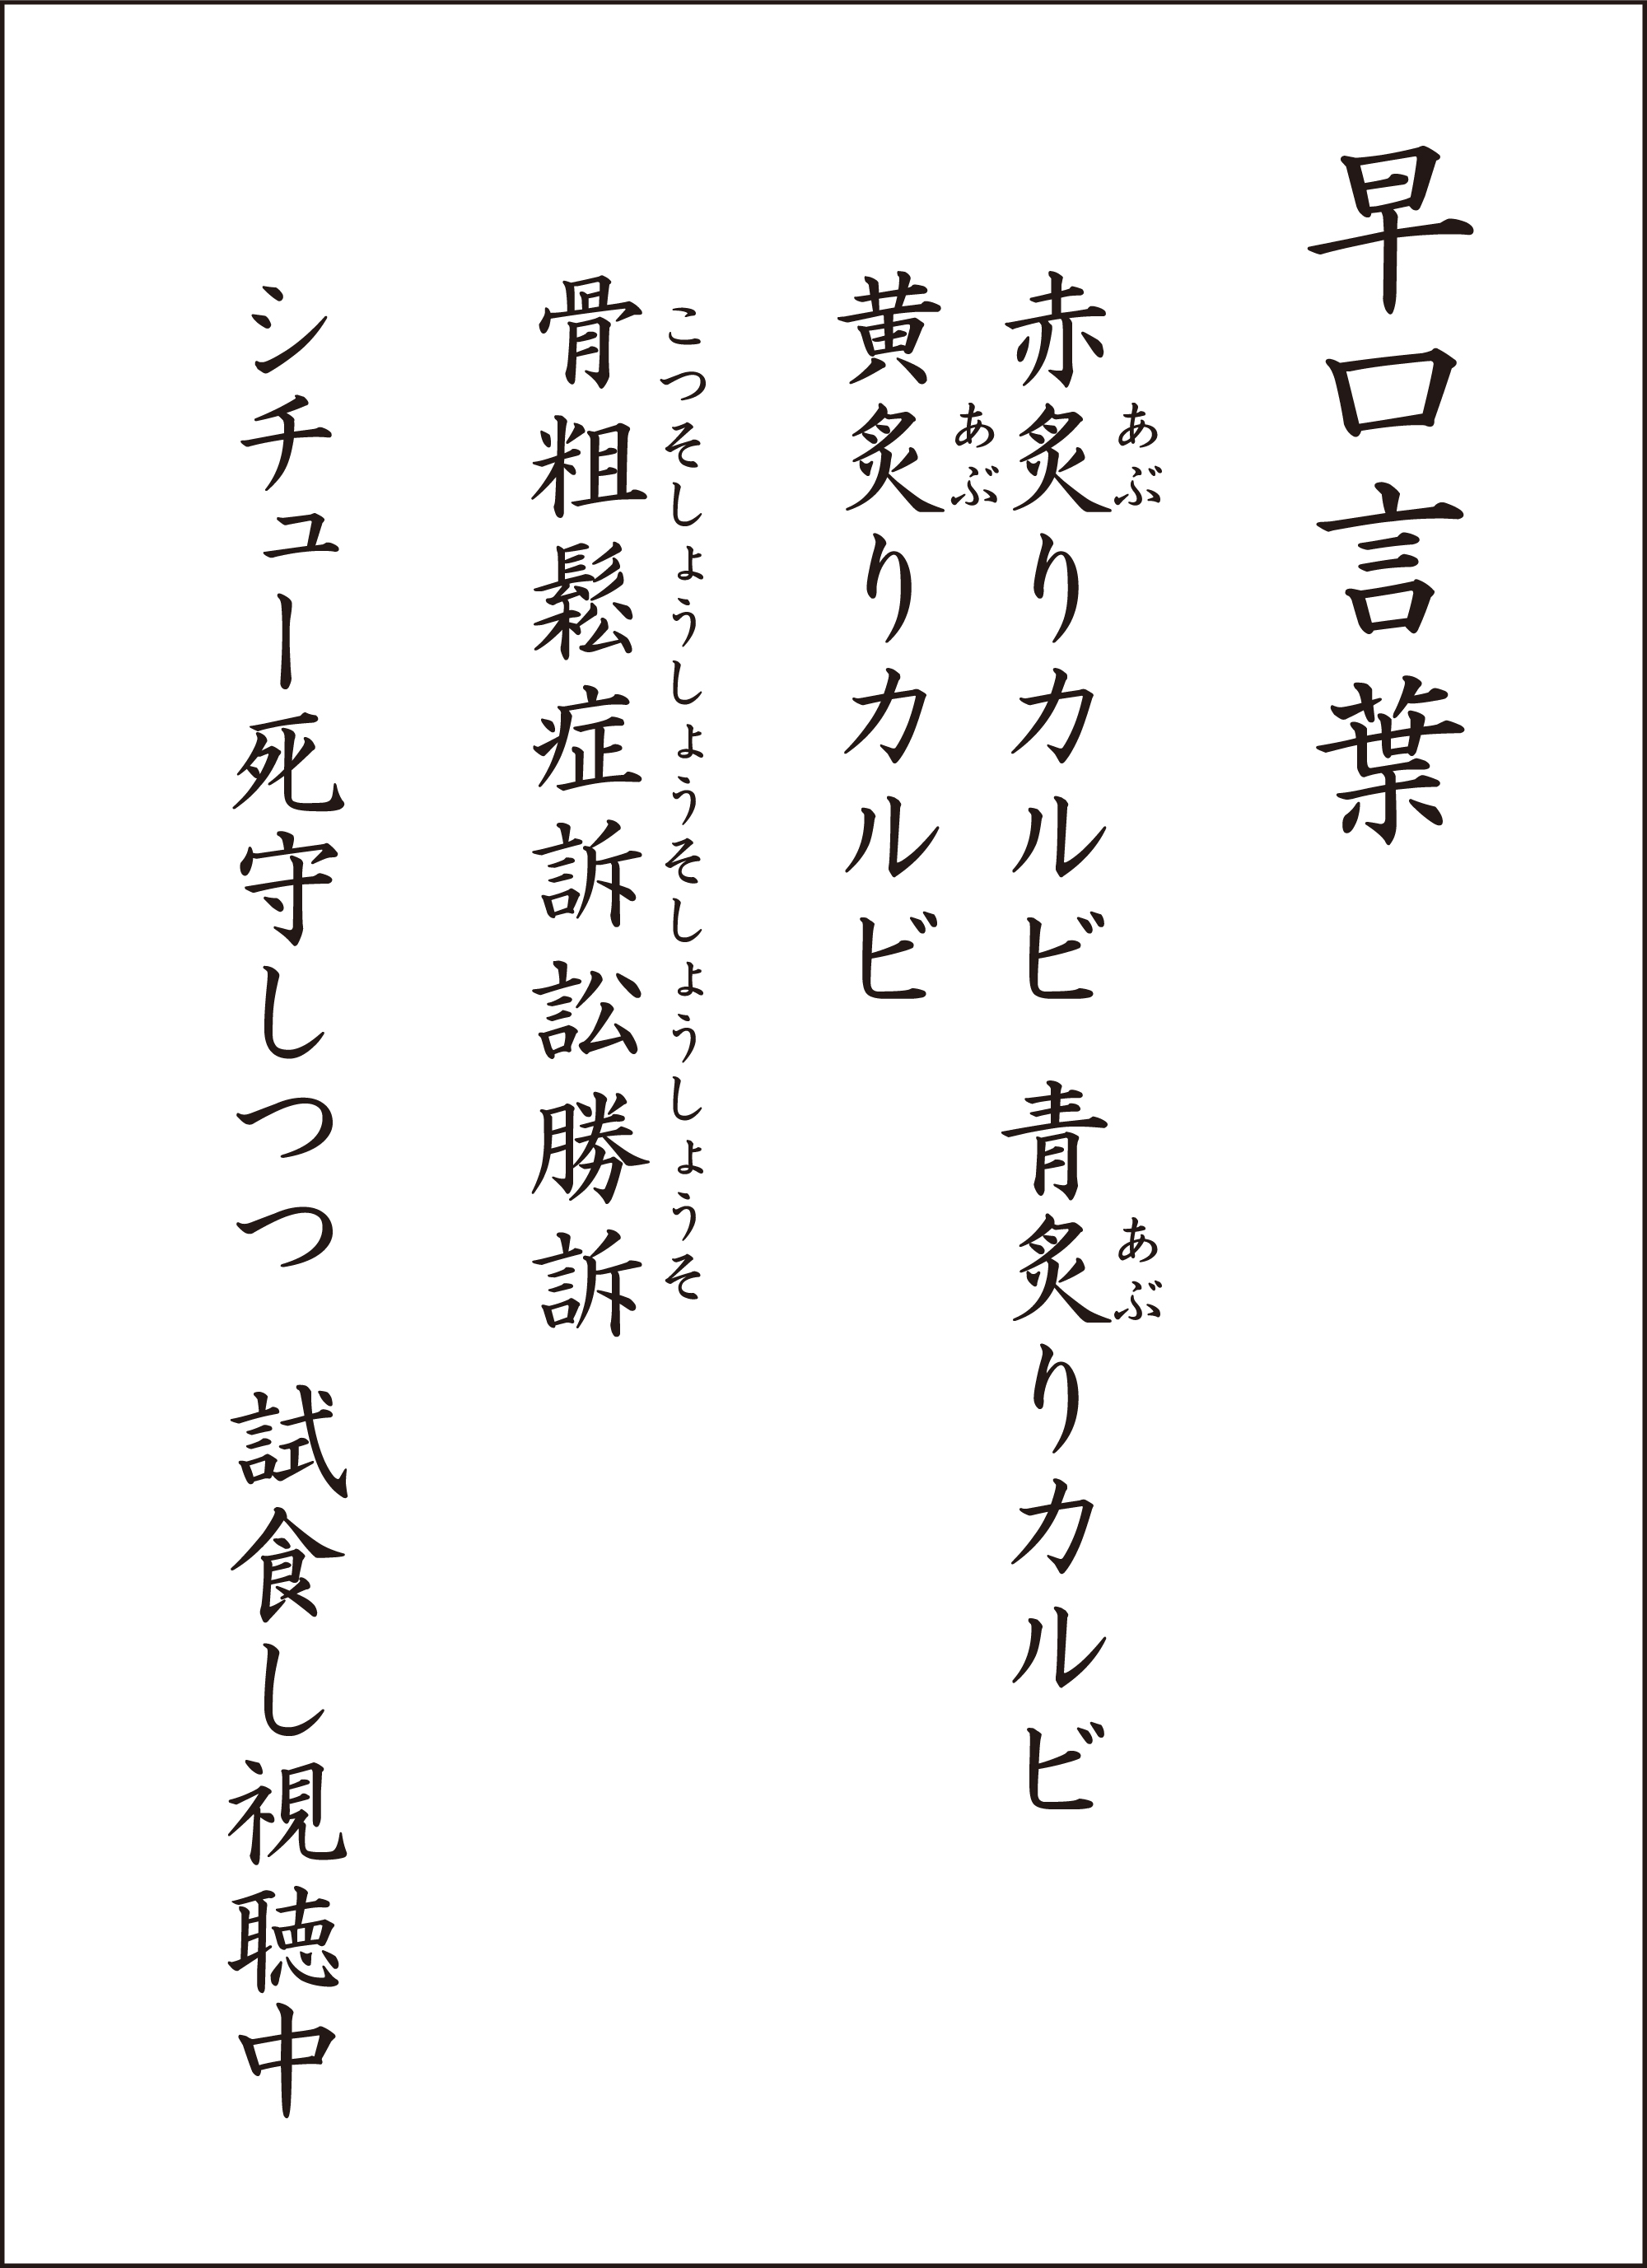 早口言葉
赤炙りカルビ　青炙りカルビ
あぶ
あぶ
黄炙りカルビ
あぶ
骨粗鬆症訴訟勝訴
こつそしょうしょうそしょうしょうそ
シチュー死守しつつ　試食し視聴中